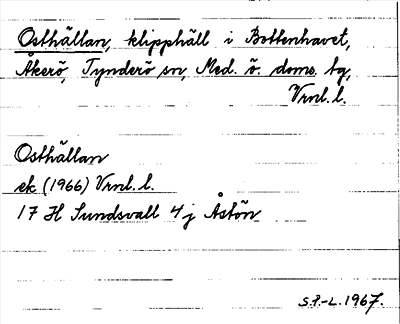 Osthällan, klipphäll i Bottenhavet,
Åkerö, Tynderö sn, Med. ö. doms. tg,
Vrnl. l.
Osthällan
ek (1966) Vrnl. l.
17 H Sundsvall 4 j Åstön
S.P.-L. 1967.